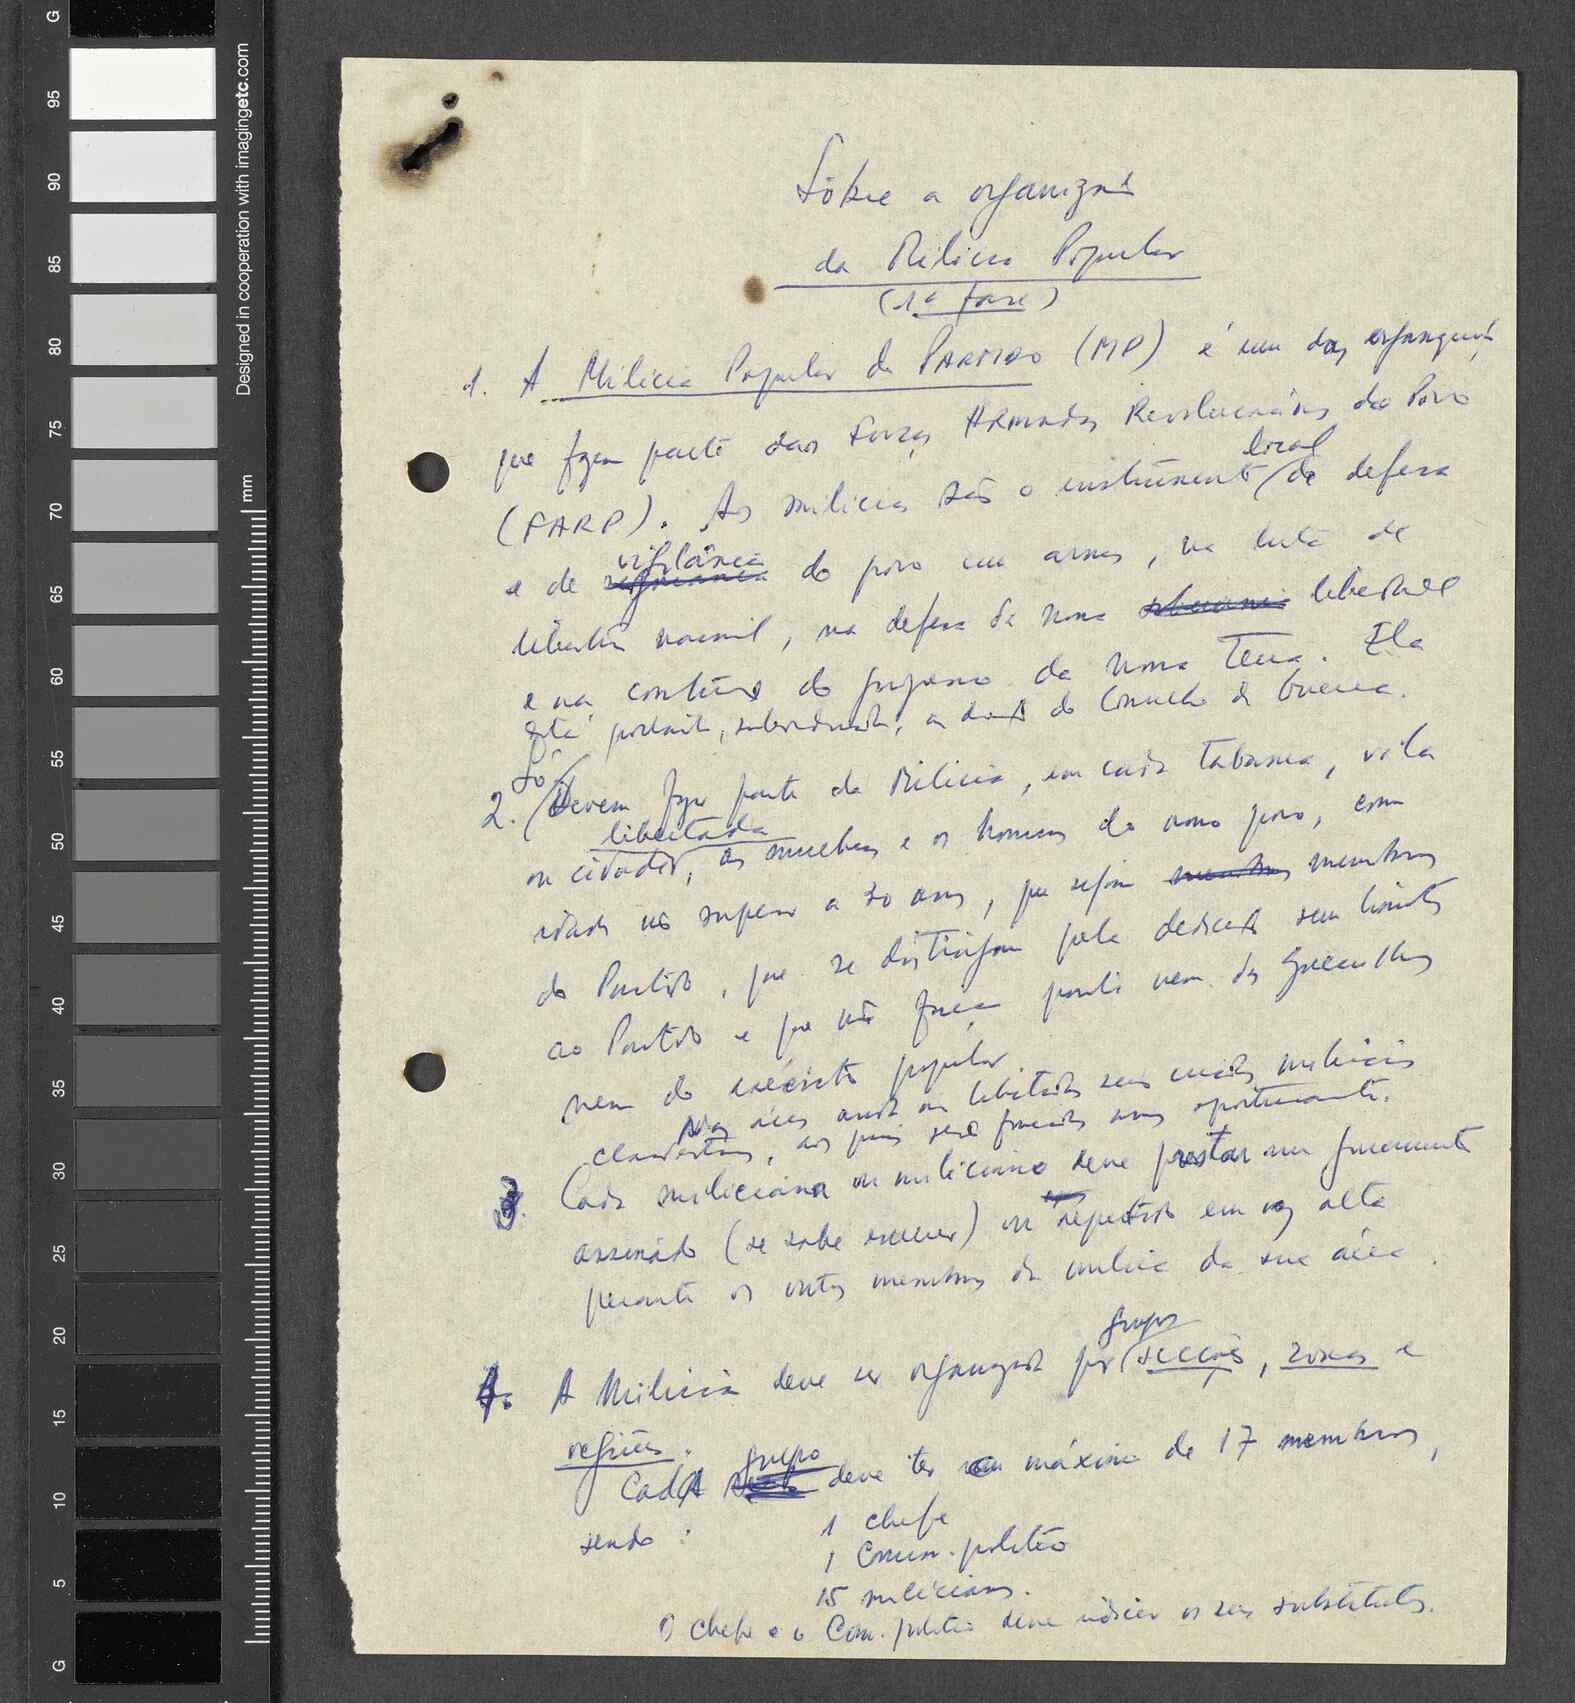 Sôbre a organizaç
da Milícia Popular
(1ª fase)
1. A Milícia Popular do PARTIDO (MP) é uma das organizações
que fazem parte das Forças ARmadas Revolucionárias do Povo
(FARP). As milícias são o instrumento local de defesa
e de vigilância do povo em armas, na luta de
libertação nacional, na defesa da nossa liberdade
e na construção do progresso da nossa Terra. Ela
está, portanto, subordinada, à do Conselho de Guerra.
2. Só devem fazer parte da Milícia, em cada tabanca, vila
ou cidade libertada, as mulheres e os homens do nosso povo, com
idade não superior a 50 anos, que sejam membros
do Partido, que se distingam pela dedicação sem limites
ao Partido e que não façam parte nem da guerrilha
nem do exército popular.
Nas áreas ainda não libertadas serão criadas milícias
clandestinas, às quais serão fornecidas armas oportunamente.
3. Cada miliciana ou miliciano deve prestar um juramento
assinado (se sabe escrever) ou repetido em voz alta
perante os outros membros da milícia da sua área.
4. A Milícia deve ser organizada por grupos, secções, zonas e
regiões.
Cada grupo deve ter um máximo de 17 membros,
sendo: 1 chefe
1 Comis. político
15 milicianos.
O chefe e o Com. político deve indicar os seus substitutos.
Designed in cooperation with imagingetc.com
mm
G
95
90
85
80
75
70
65
60
55
50
45
40
35
30
25
20
15
10
5
G